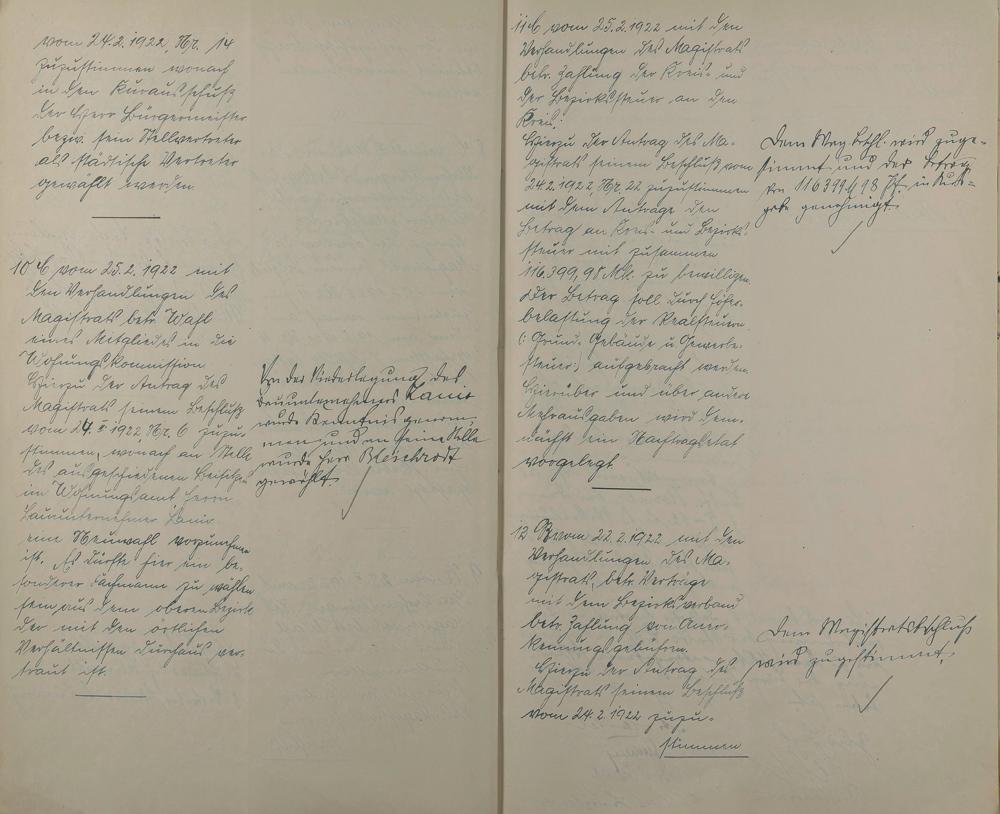 vom 24.2.1922, Nr. 14
zuzustimmen wonach
in den Kurausschuß
der Herr Bürgermeister
bezw. sein Stellvertreter
als städtische Vertreter
gewählt werden
10 C vom 25.2.1922 mit
den Verhandlungen des
Magistrats betr. Wahl
eines Mitgliedes in die
Wohnungskommission
Hierzu der Antrag des
Magistrats seinem Beschluß
vom 24. II 1922 Nr. 6 zuzu-
stimmen, wonach an Stelle
des ausgeschiedenen Beisitzer
im Wohnungsamt Herrn
Bauunternehmer Janis
eine Neuwahl vorzunehmen
ist. Es dürfte hier ein be-
sonderer Fachmann zu wählen
sein aus dem oberen Bezirk
der mit den örtlichen
Verhältnissen durchaus ver-
traut ist.
Von der Niederlegung des
Bauunternehmers Janis
wurde Kenntnis genom-
men und an seine Stelle
wurde Herr Bleschrodt
gewählt.
11 C vom 25.2.1922 mit den
Verhandlungen des Magistrats
betr. Zahlung der Kreis- und
der Bezirkssteuer an den
Kreis:
Hierzu der Antrag des Ma-
gistrats seinem Beschluß vom
24.2.1922, Nr. 22 zuzustimmen
mit dem Antrage den
Betrag an Kreis- und Bezirks-
steuer mit zusammen
116.399,98 Mk. zu bewilligen
Der Betrag soll durch Höher-
belastung der Realsteuern
(: Grund- Gebäude u Gewerbe-
steuer:) aufgebracht werden
Hierüber und über andere
Mehrausgaben wird dem-
nächst ein Nachtragsetat
vorgelegt.
Dem Mag. Beschl. wird zuge-
stimmt und der Betrag
von 116399 M 98 Pf. in Aus-
gabe genehmigt.
12 B vom 22.2.1922 mit den
Verhandlungen des Ma-
gistrats, betr. Verträge
mit dem Bezirksverband
betr. Zahlung von Aner-
kennungsgebühren.
Hierzu der Antrag des
Magistrats seinem Beschluß
vom 24.2.1922 zuzu-
stimmen
Dem Magistratsbeschluß
wird zugestimmt.